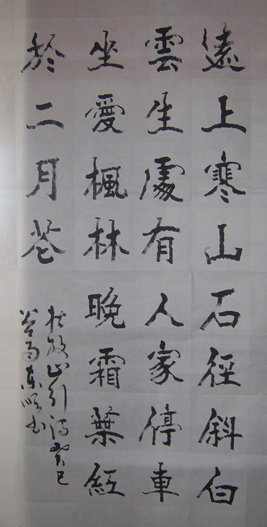 遠上寒山石徑斜白
雲生處有人家停車
坐愛楓林晚霜葉紅
於二月花
杜牧山行詩癸巳